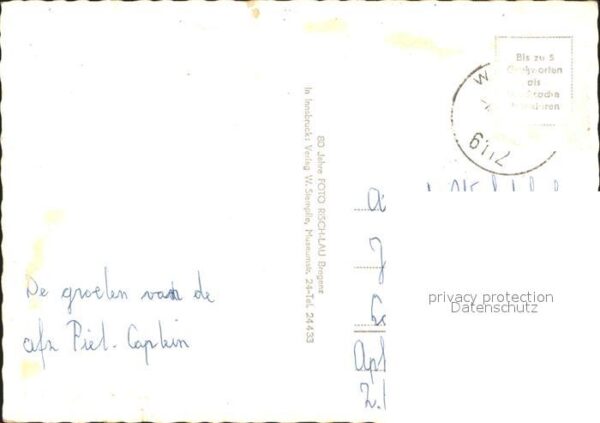 De groeten van de
afz Piet. Captein
80 Jahre FOTO RISCH-LAU Bregenz
In Innsbruck: Verlag W. Stempfle, Museumstr. 24-Tel. 24433
Bis zu 5
Grußworten
als
Drucksache
W
6112
privacy protection
Datenschutz